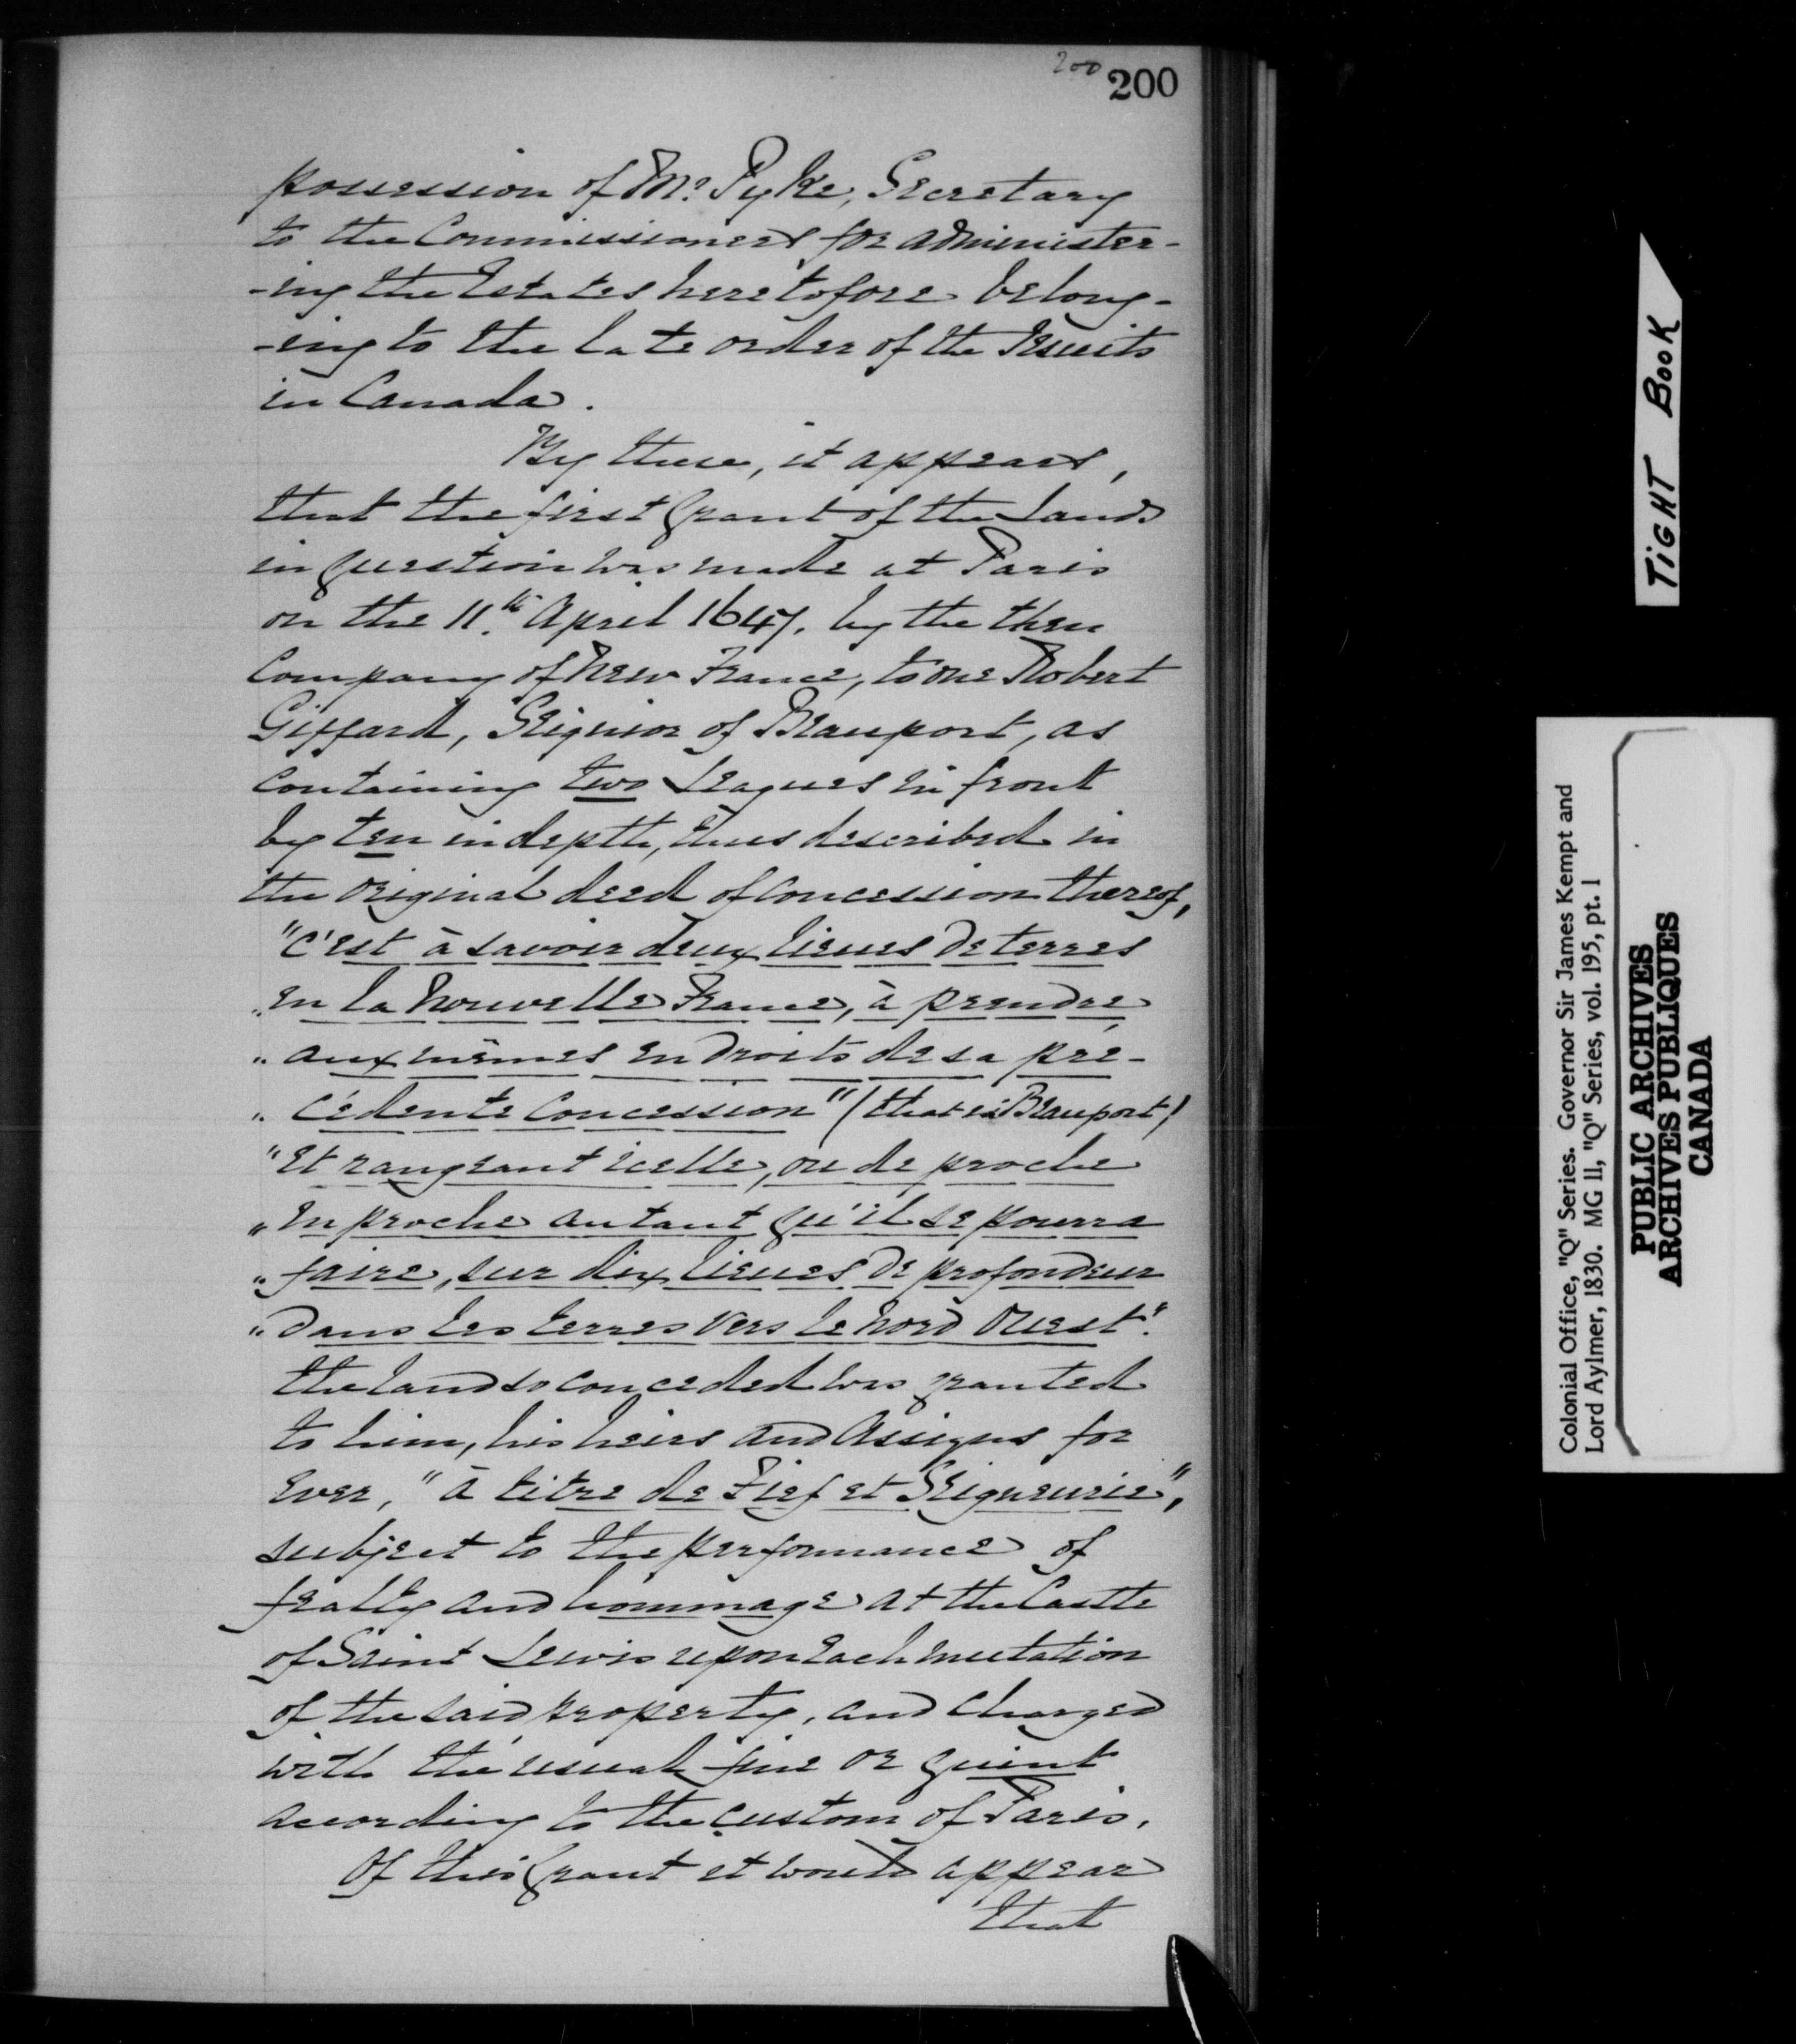 200
200
possession of Mr. Pyke, Secretary
to the Commissioners for administer-
-ing the Estates heretofore belong-
-ing to the late order of the Jesuits
in Canada.
By these, it appears,
that the first Grant of the Lands
in question was made at Paris
on the 11th. April 1647. by the then
Company of New France, to one Robert
Giffard, Seignior of Beauport, as
containing two Leagues in front
by ten in depth, thus described in
the original deed of Concession thereof,
"C'est à savoir deux lieues de terres
"en la Nouvelle France, à prendre
"aux mêmes endroits de sa pré-
"cédente Concession" (that is Beauport)
"Et rangeant icelle, ou de proche
"en proche autant qu'il se pourra
"faire, sur dix lieues de profondeur
"dans les terres vers le Nord Ouest".
the land so conceded was granted
to him, his heirs and Assigns for
ever, "à titre de Fief et Seigneurie",
subject to the performance of
fealty and hommage at the Castle
of Saint Lewis upon each mutation
of the said property, and charged
with the usual fine or quint
according to the custom of Paris.
Of this Grant it would appear
that
TIGHT BOOK
Colonial Office, "Q" Series. Governor Sir James Kempt and
Lord Aylmer, 1830. MG 11, "Q" Series, vol. 195, pt. 1
PUBLIC ARCHIVES
ARCHIVES PUBLIQUES
CANADA